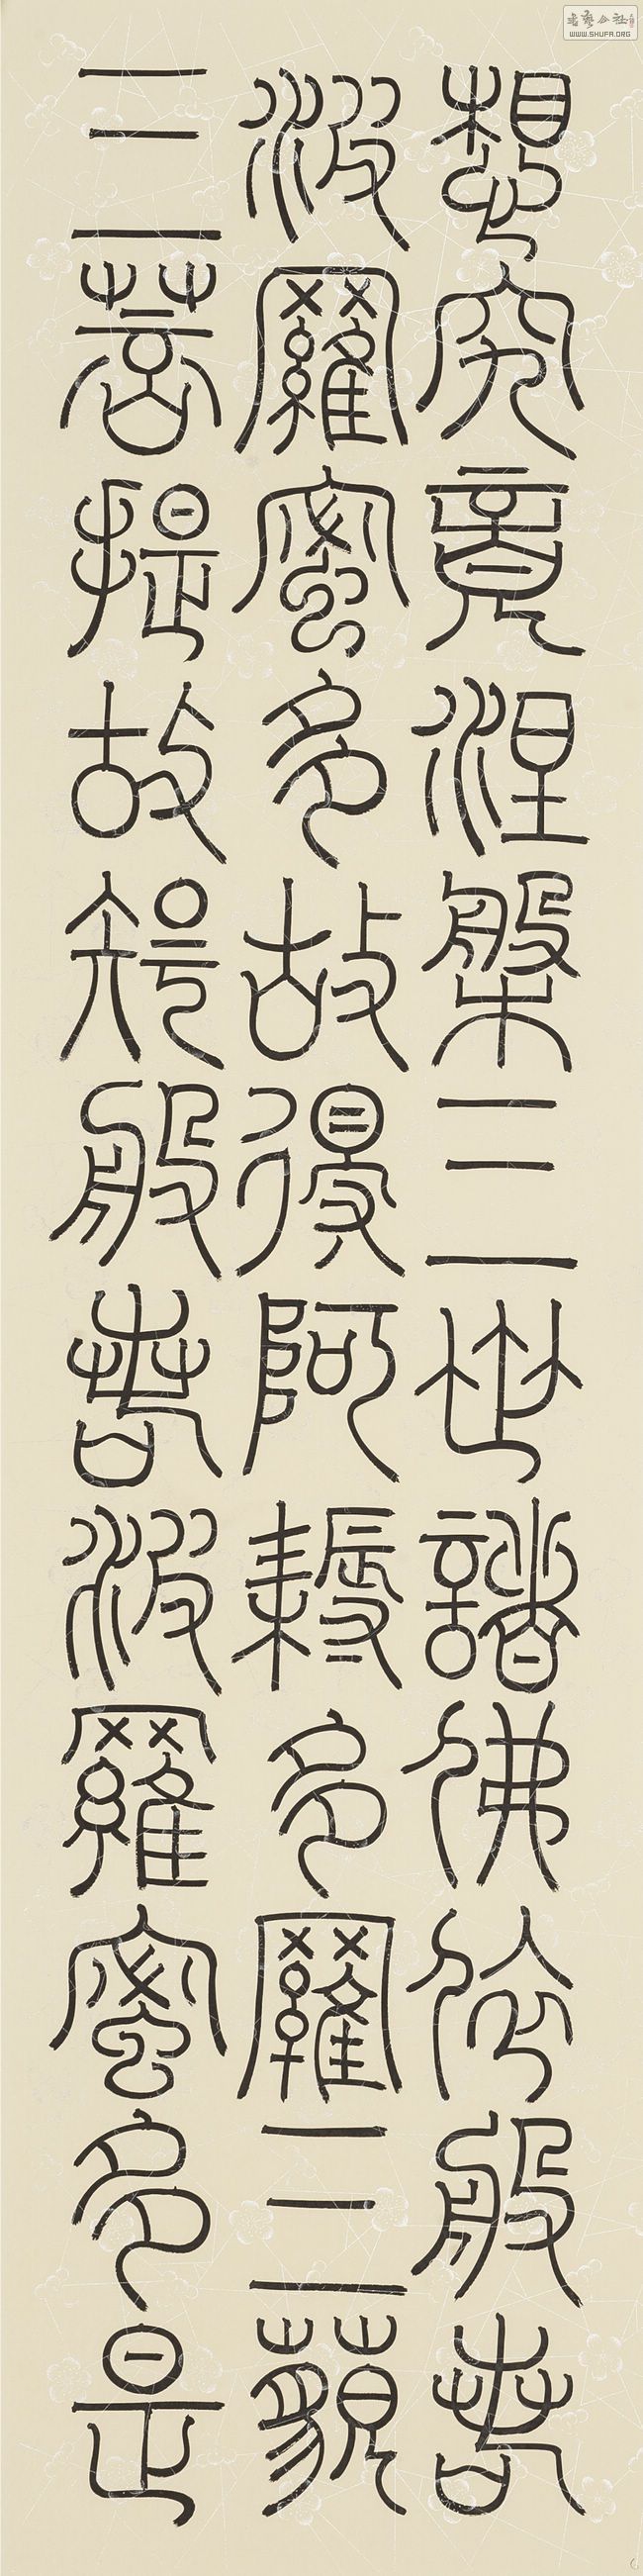 想究竟涅槃三世諸佛依般若
波羅蜜多故得阿耨多羅三藐
三菩提故知般若波羅蜜多是
WWW.SHUFA.ORG